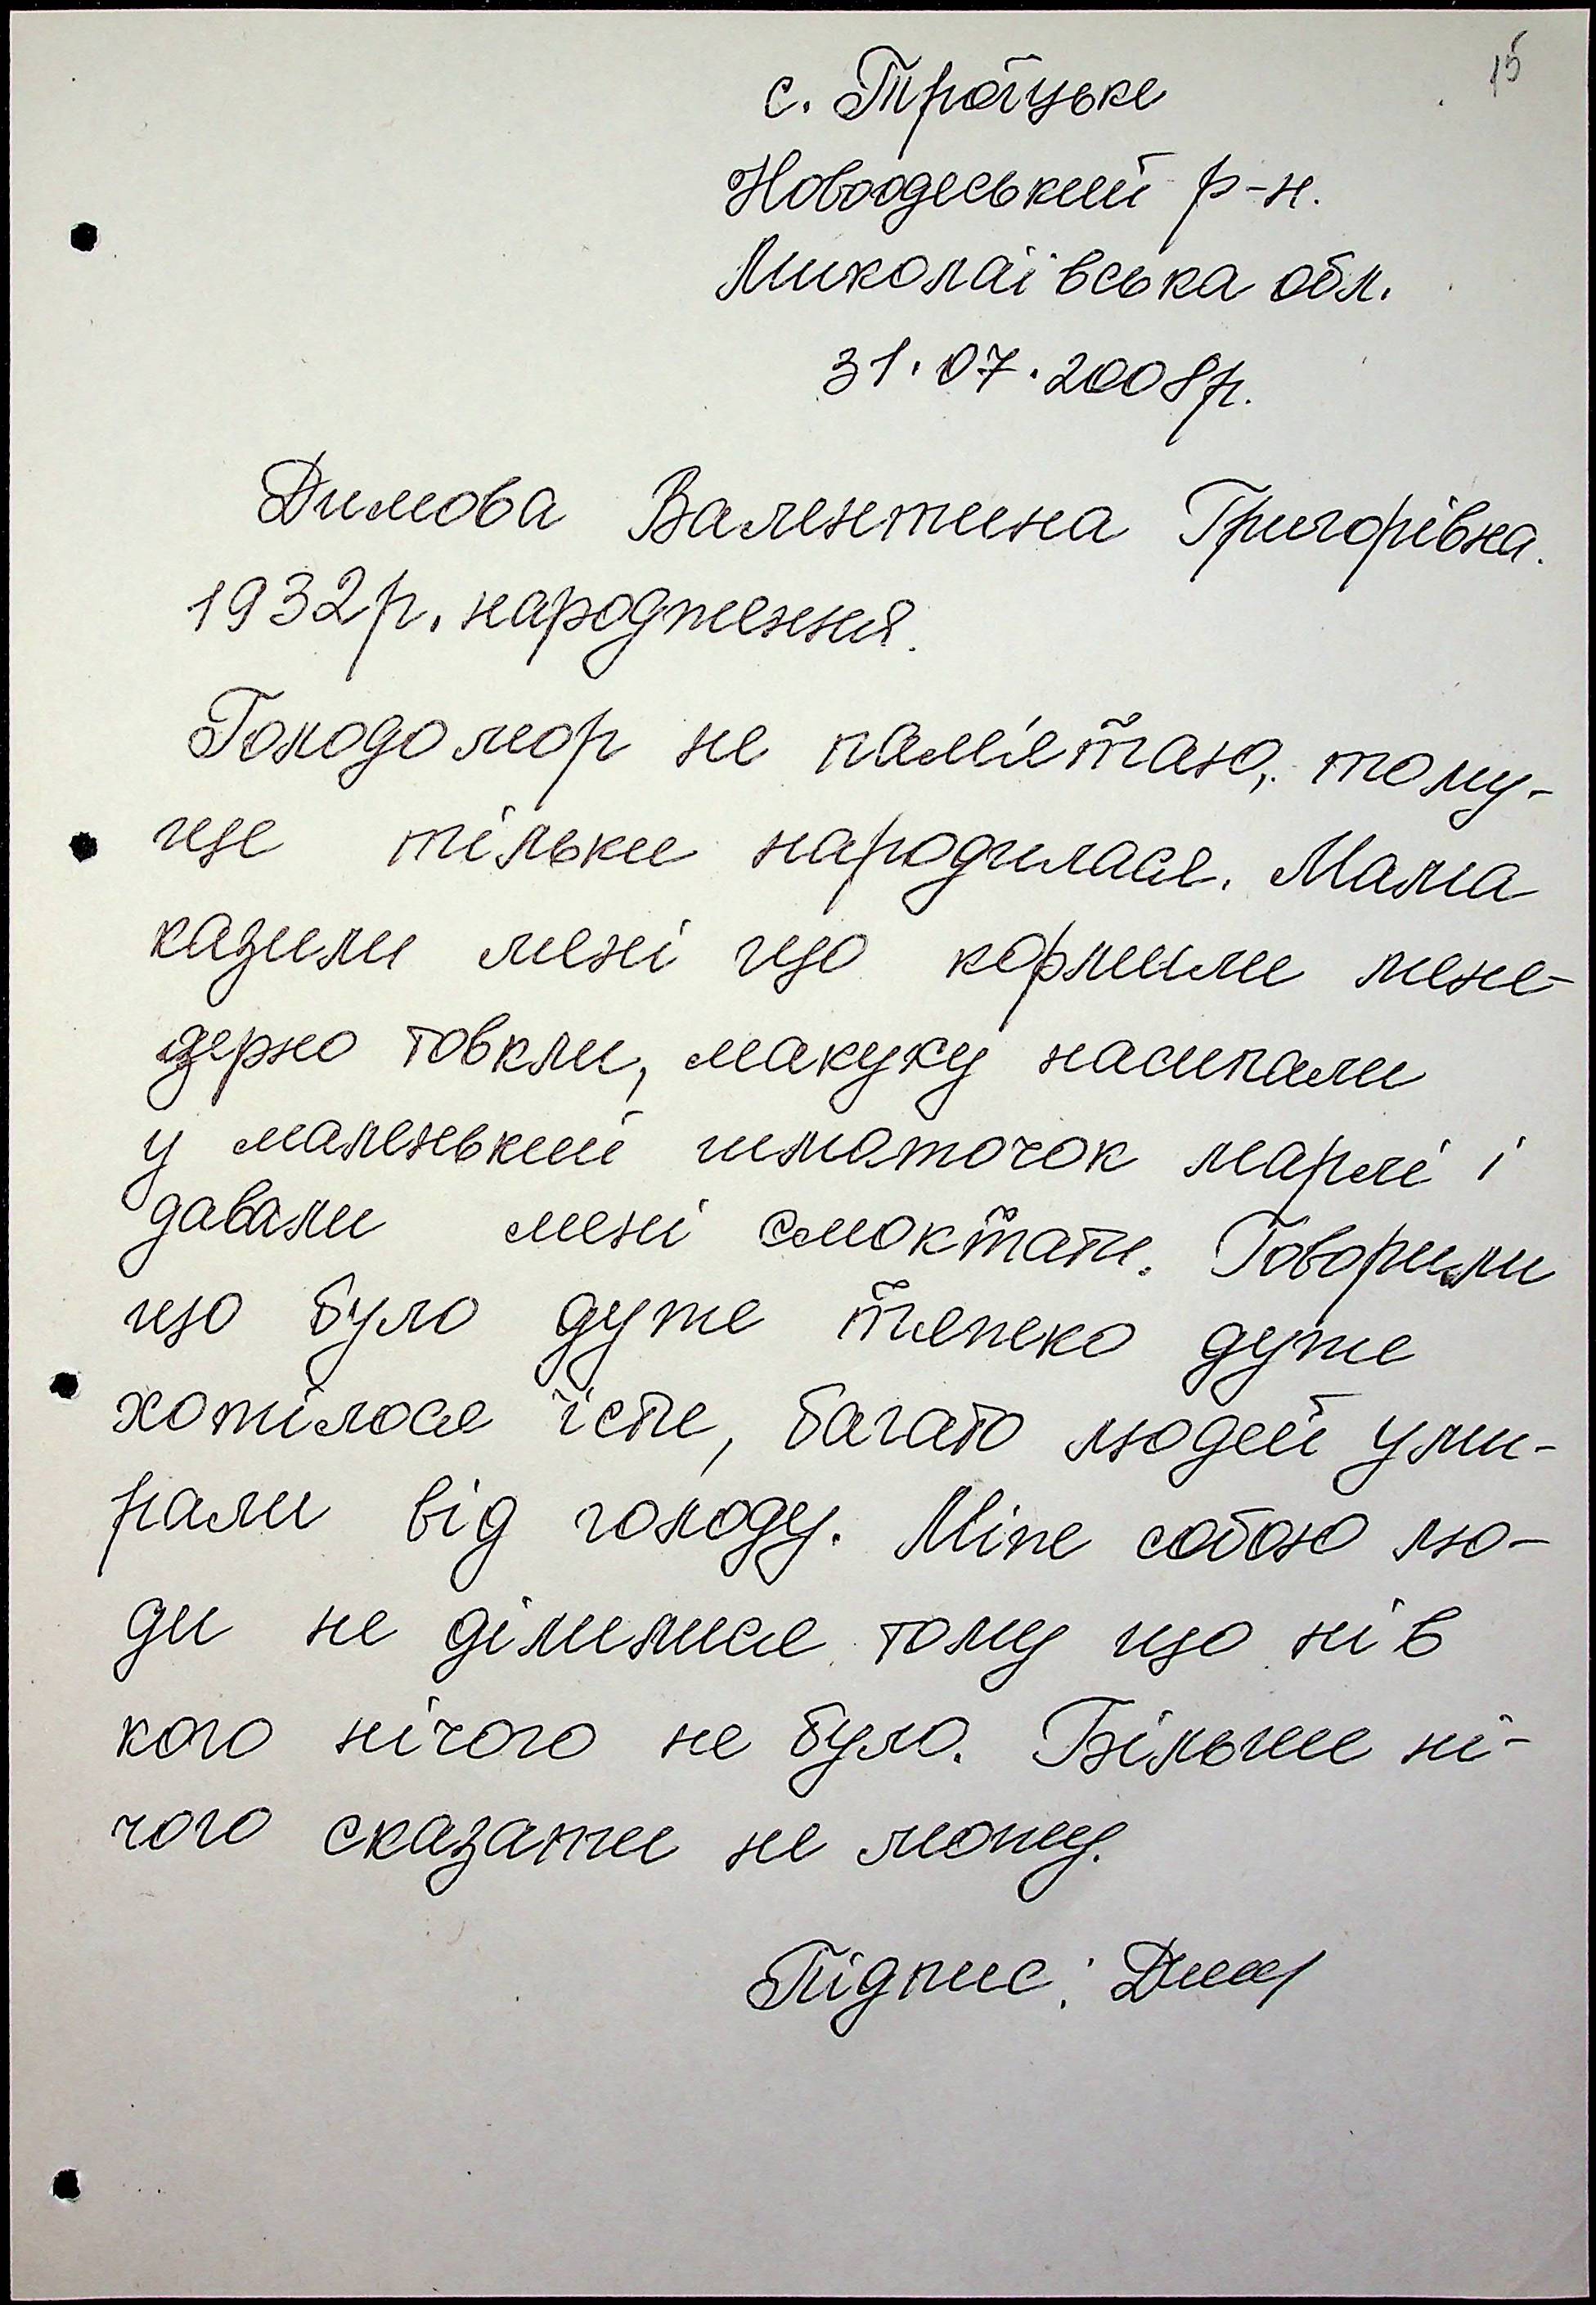 15
с. Троїцьке
Новоодеський р-н.
Миколаївська обл.
31.07.2008р.
Димова Валентина Григорівна.
1932р. народження.
Голодомор не пам'ятаю, тому-
ще тільки народилася. Мама
казили мені що кормили мене-
зерно товкли, макуху насипали
у маленький шматочок марлі і
давали мені смоктати. Говорили
що було дуже тяжко дуже
хотілося їсти, багато людей уми-
рали від голоду. Між собою лю-
ди не ділилися тому що ні в
кого нічого не було. Більше ні-
чого сказати не можу.
Підпис: Дим